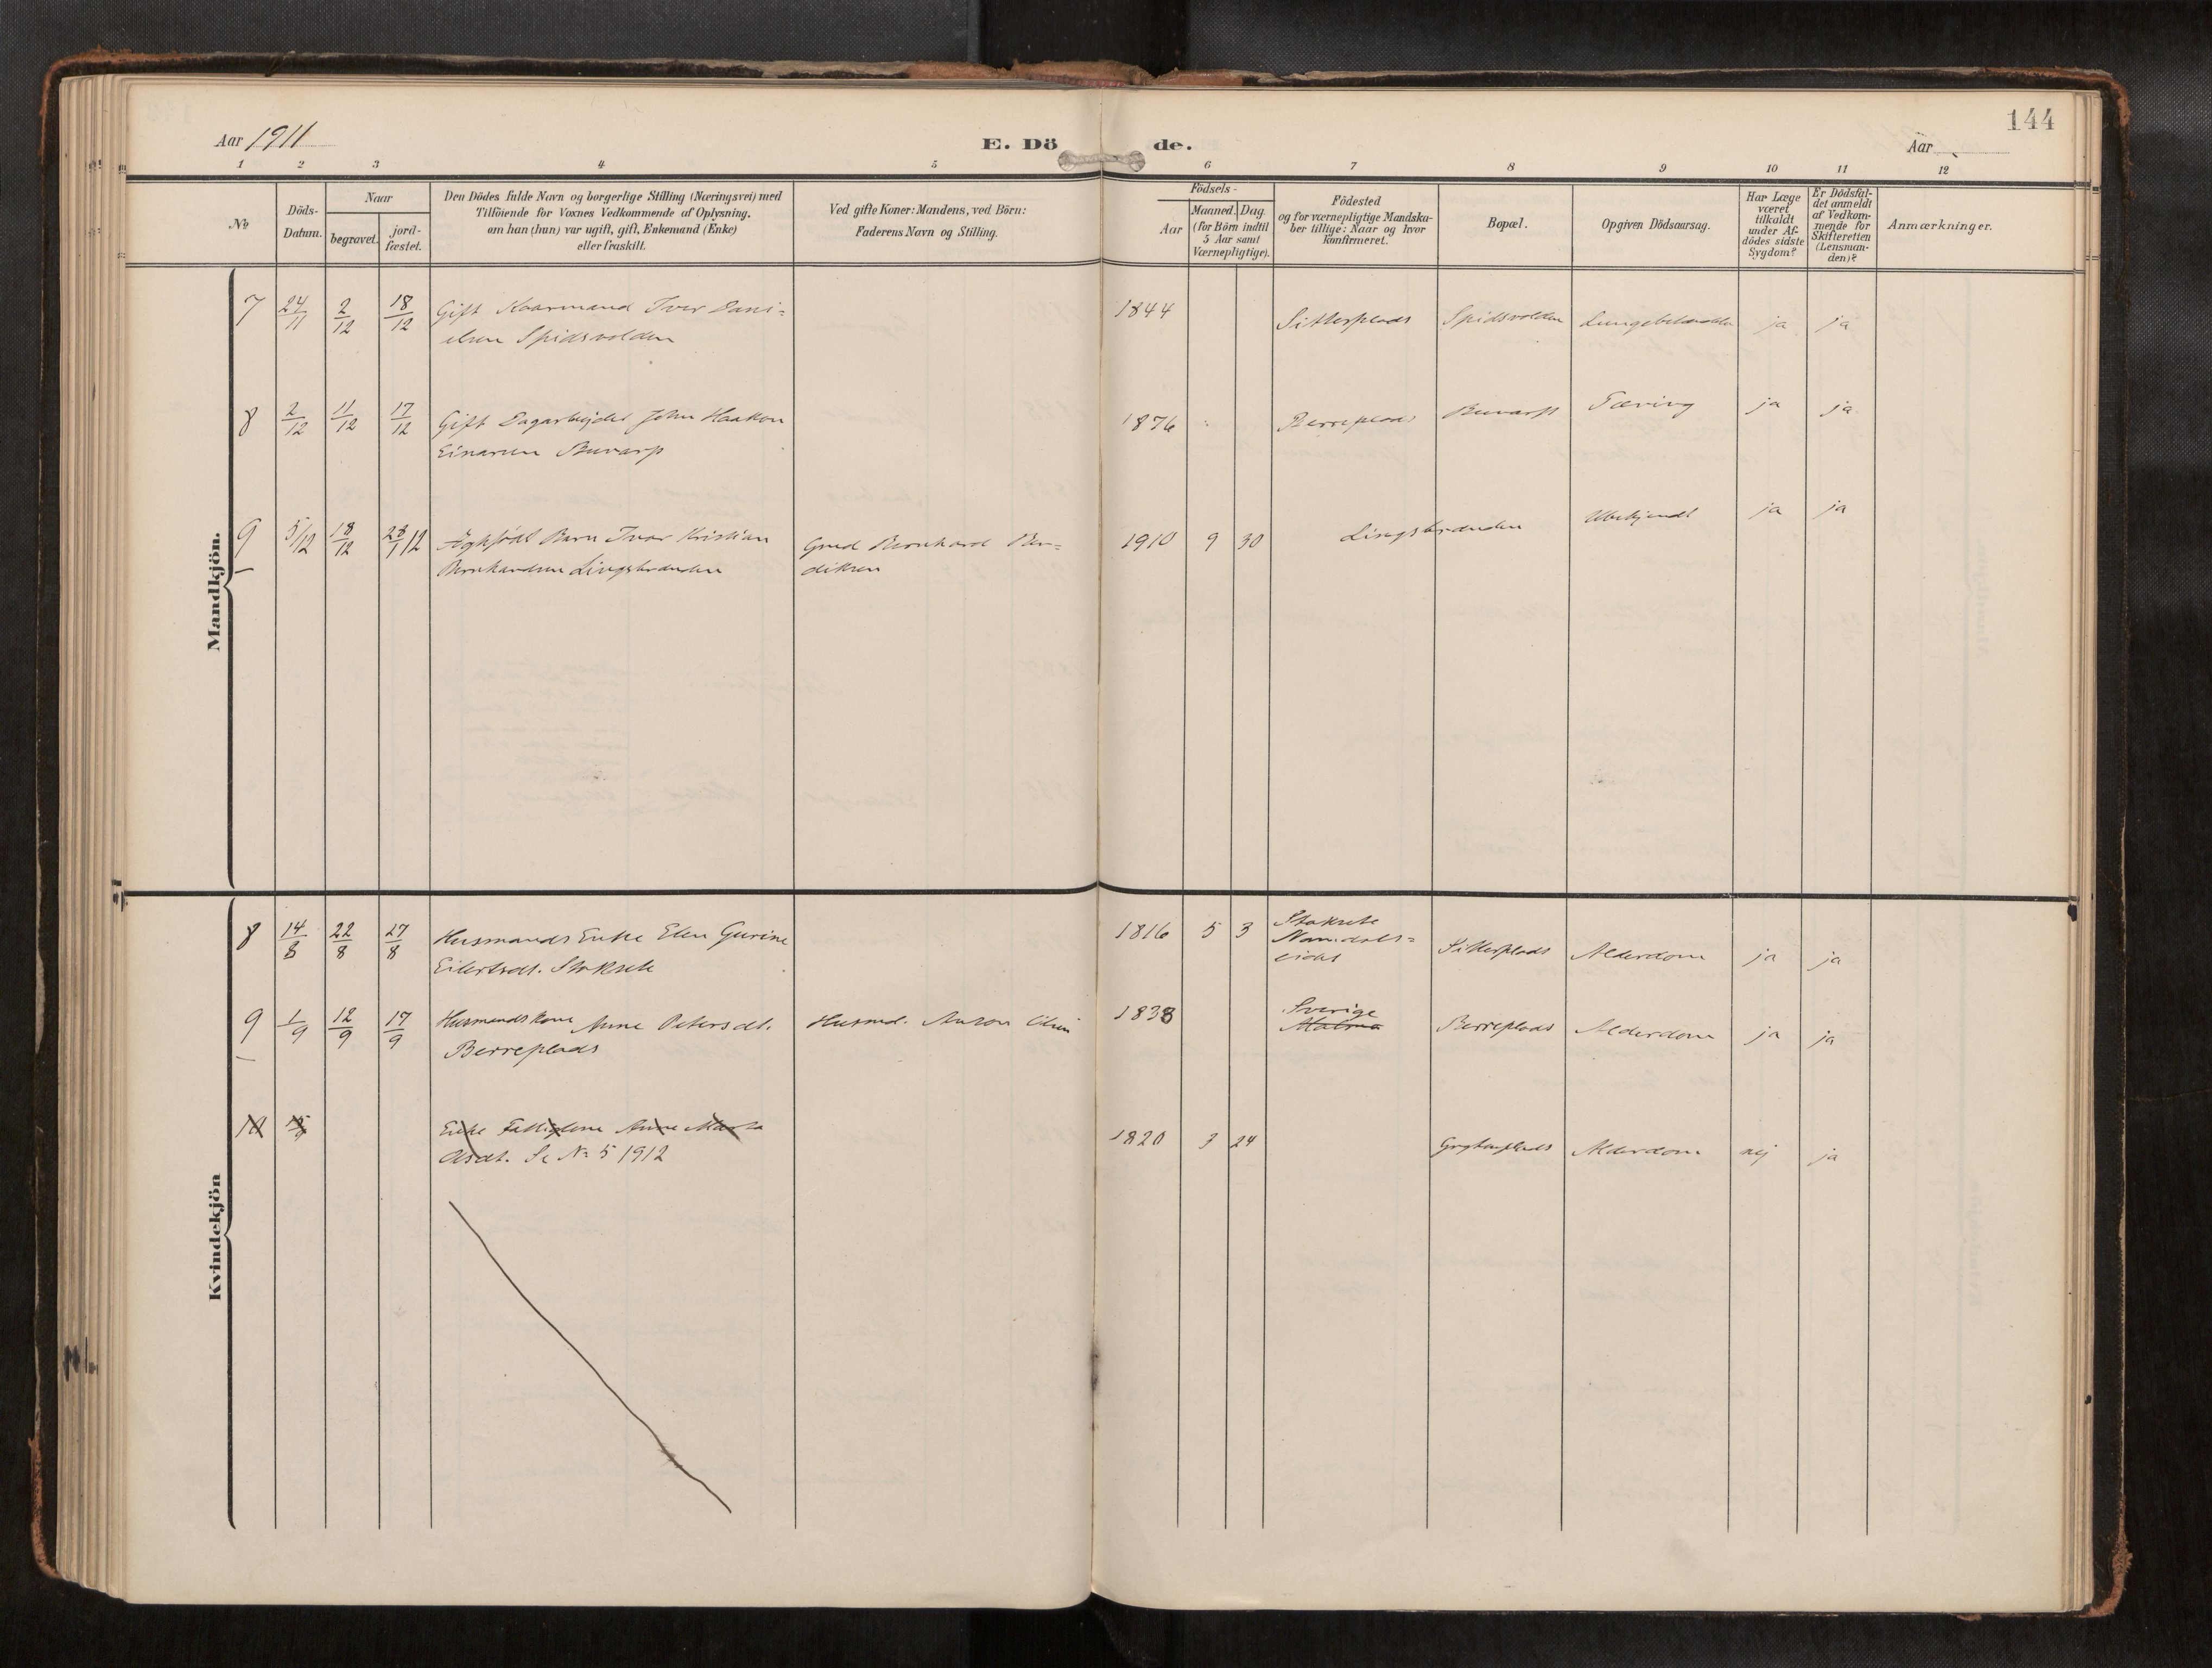 144
Aar 1911
E. Dö de.
Aar
1 2 3 4 5 6 7 8 9 10 11 12
No
Döds-
Datum.
Naar
begravet.
jord-
fæstet.
Den Dödes fulde Navn og borgerlige Stilling (Næringsvei) med
Tilföiende for Voxnes Vedkommende af Oplysning,
om han (hun) var ugift, gift, Enkemand (Enke)
eller fraskilt.
Ved gifte Koner: Mandens, ved Börn:
Faderens Navn og Stilling.
Födsels-
Aar
Maaned. Dag
(for Börn indtil
5 Aar samt
Værnepligtige).
Födested
og for værnepligtige Mandska-
ber tillige: Naar og hvor
konfirmeret.
Bopæl.
Opgiven Dödsaarsag.
Har Læge
været
tilkaldt
under Af-
dödes sidste
Sygdom?
Er Dödsfal-
det anmeldt
af Vedkom-
mende for
Skifteretten
(Lensman-
den)?
Anmærkninger.
Mandkjön.
7 24/11 2/12 18/12 Gift Kaarmand Iver Dani=
elsen Spidsvolden
1844 Sitterplads Spidsvolden ja ja
8 2/12 11/12 17/12 Gift Dagarbejder John Haakon
Einarsen Buvarp
1876 Berreplads Buvarp Tæring ja ja
9 5/12 18/12 28/1 12 Ægtefødt Barn Ivar Kristian
Bernhardsen Lingsbranden
Gmd Bernhard Ben=
diksen
1910 9 30 Lingsbranden Ubekjendt ja ja
Kvindekjön
8 14/8 22/8 27/8 Husmands Enke Elen Gurine
Eilertsdt. Staksete
1816 5 3 Staksete
Namdals=
eidet
Sitterplads Alderdom ja ja
9 1/9 12/9 17/9 Husmandskone Anne Petersdt.
Berreplads
Husmd. Anton
1838 Sverige
Malmø
Berreplads Alderdom ja ja
10 Enke Fattiglem Anne Marta
Olsdt. Se No 5 1912
1820 3 24 Alderdom nej ja